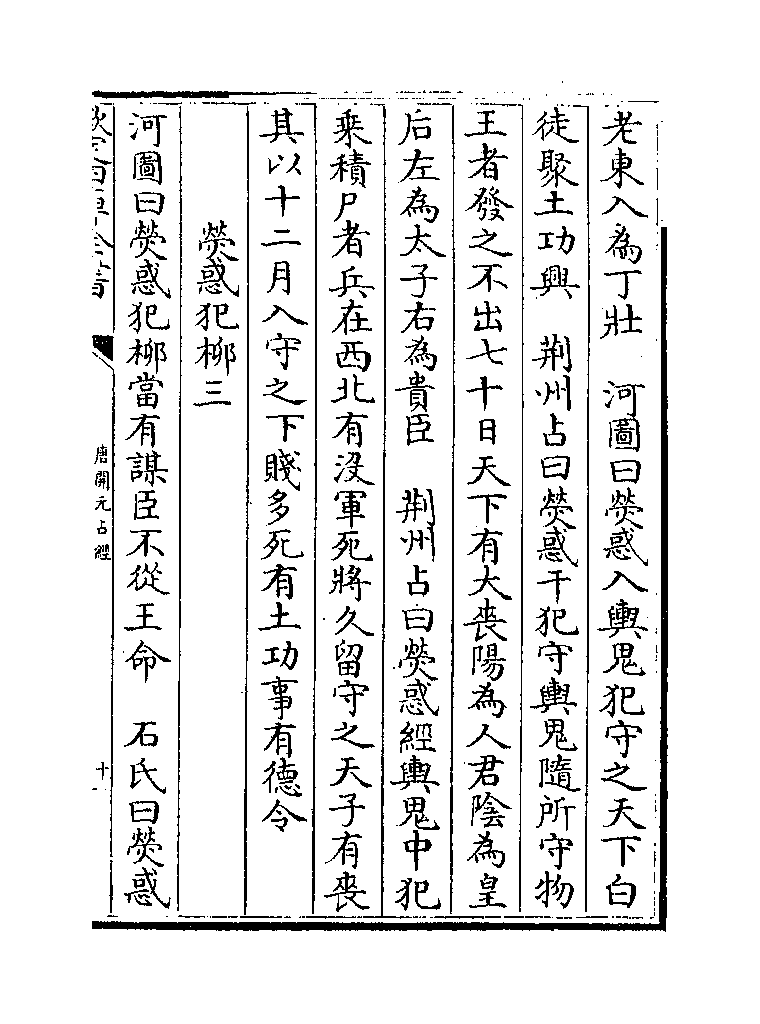 老東入為丁壯　河圖曰熒惑入輿鬼犯守之天下白
徒聚土功興　荆州占曰熒惑干犯守輿鬼隨所守物
王者發之不出七十日天下有大喪陽為人君陰為皇
后左為太子右為貴臣　荆州占曰熒惑經輿鬼中犯
乘積尸者兵在西北有沒軍死將久留守之天子有喪
其以十二月入守之下賤多死有土功事有德令
熒惑犯柳三
河圖曰熒惑犯柳當有謀臣不從王命　石氏曰熒惑
唐開元占經